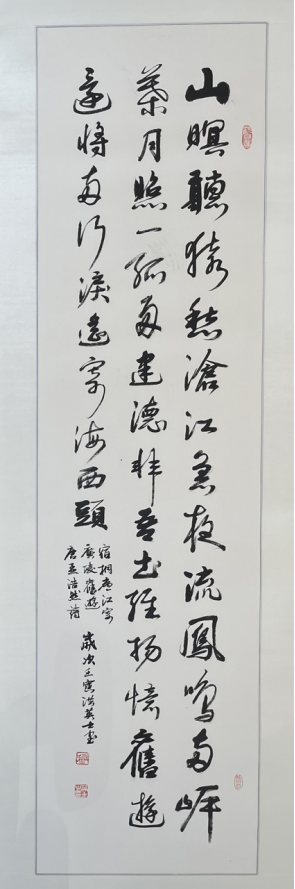 山暝聽猿愁滄江急夜流鳳鳴兩岸
葉月照一孤舟建德非吾土維揚憶舊遊
還將兩行淚遙寄海西頭
宿桐廬江寄
廣陵舊遊
唐孟浩然詩
歲次壬寅洪英士書